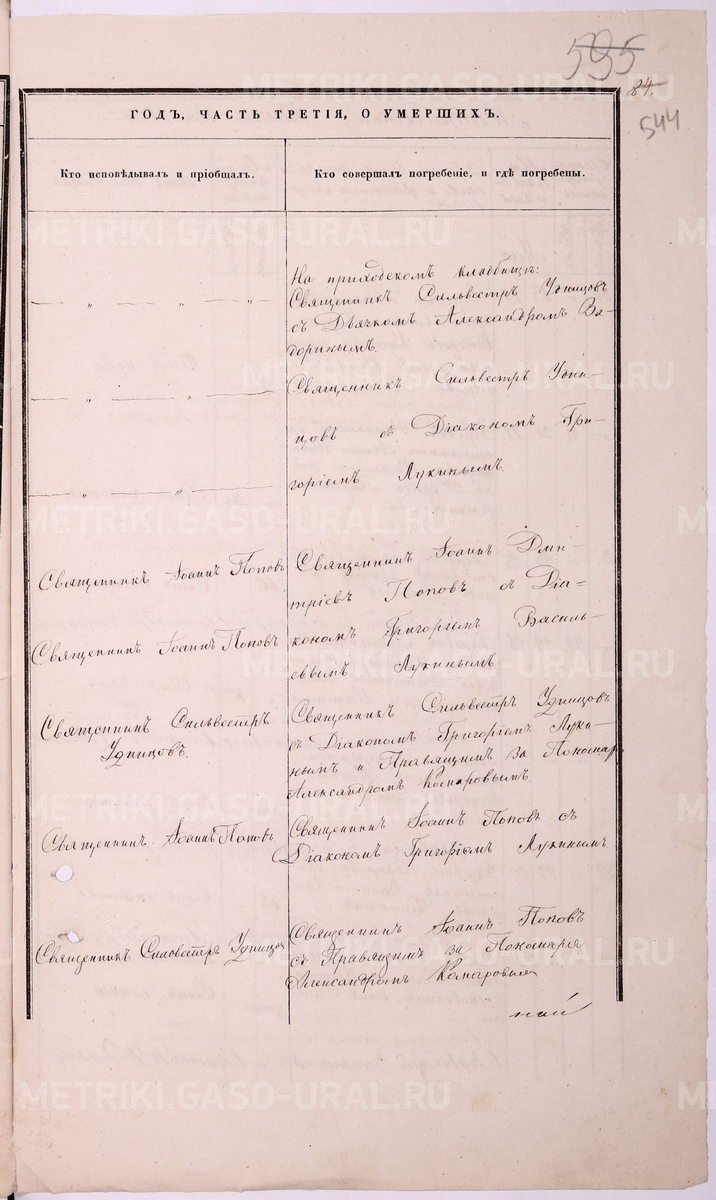 595
84.
544
ГОДЪ, ЧАСТЬ ТРЕТІЯ, О УМЕРШИХЪ.
Кто исповѣдывалъ и пріобщалъ.
Кто совершалъ погребеніе, и гдѣ погребены.
На приходскомъ кладбищѣ:
Священникъ Сильвестръ Удинцовъ
съ Дьячкомъ Александромъ
Священникъ Сильвестръ Удин-
цовъ съ Діакономъ Гри-
горіемъ Лукинымъ.
Священникъ Іоаннъ Поповъ
Священникъ Іоаннъ Дми-
тріевъ Поповъ съ Діа-
Священникъ Іоаннъ Поповъ
кономъ Григоріемъ Василь-
евымъ Лукинымъ
Священникъ Сильвестръ
Удинцовъ.
Священникъ Сильвестръ Удинцовъ
съ Діакономъ Григоріемъ Луки-
нымъ и Правящимъ за Пономаря
Александромъ Комаровымъ.
Священникъ Іоаннъ Поповъ
Священникъ Іоаннъ Поповъ съ
Діакономъ Григоріемъ Лукинымъ.
Священникъ Сильвестръ Удинцовъ
Священникъ Іоаннъ Поповъ
съ Правящимъ за Пономаря
Александромъ Комаровымъ
ній
METRIKI.GASO-URAL.RU